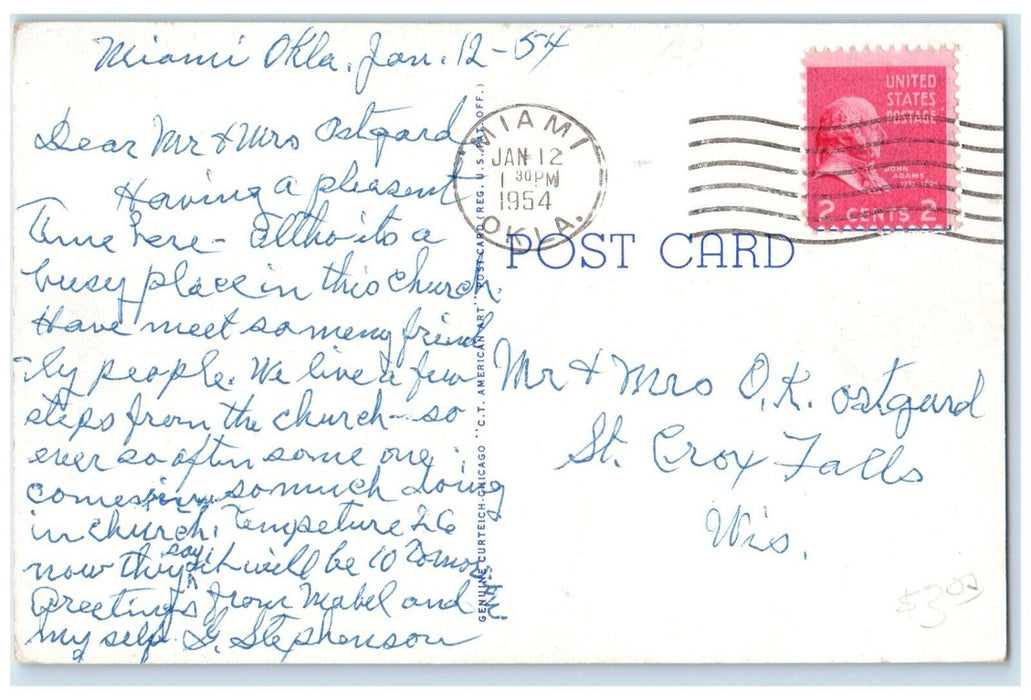 Miami Okla. Jan. 12-54
Dear Mr & Mrs Ostgard
Having a pleasent
Time here - altho its a
busy place in this church.
Have meet someny friend
-ly people. We live a few
steps from the church - so
ever so often some one
comes in so much doing
in church. Tempeture 26
now they say it will be 10 Tomor
Greetings from Mabel and
my self. G. Stephenson
GENUINE CURTEICH-CHICAGO "C.T. AMERICAN ART" POST CARD (REG. U.S. PAT. OFF.)
MIAMI
JAN 12
1 30 PM
1954
OKLA.
UNITED
STATES
POSTAGE
JOHN
ADAMS
2 CENTS 2
POST CARD
Mr & Mrs O.K. Ostgard
St. Croix Falls
Wis.
$3.00